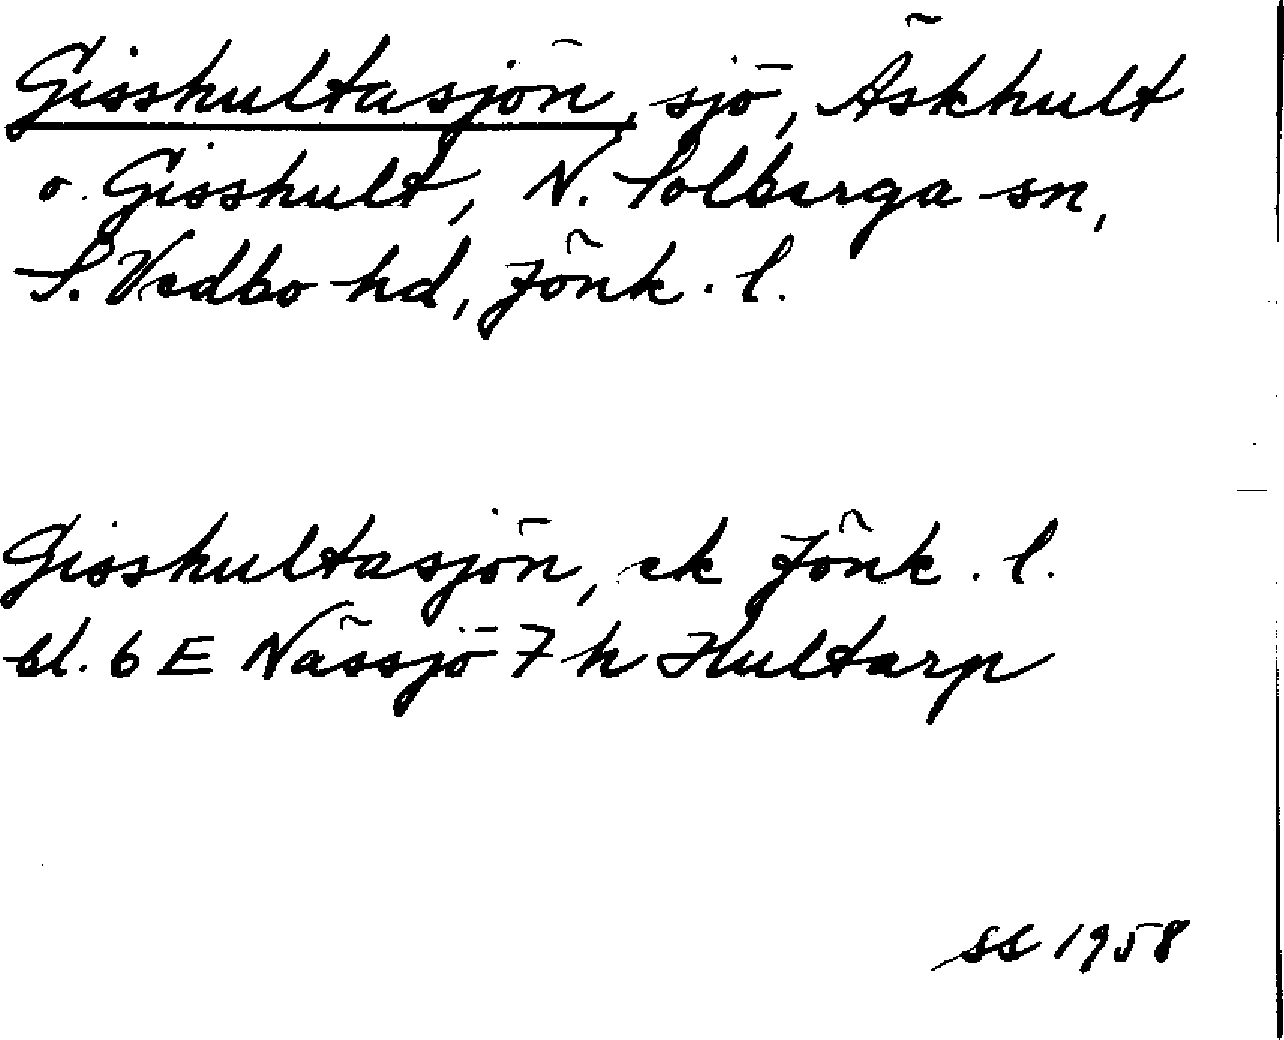 Gisshultasjön, sjö, Äskhult
o. Gisshult, N. Solberga sn,
S. Vedbo hd, Jönk. l.
Gisshultasjön, ek Jönk. l.
bl. 6 E Nässjö 7 h Hultarp
SS 1958